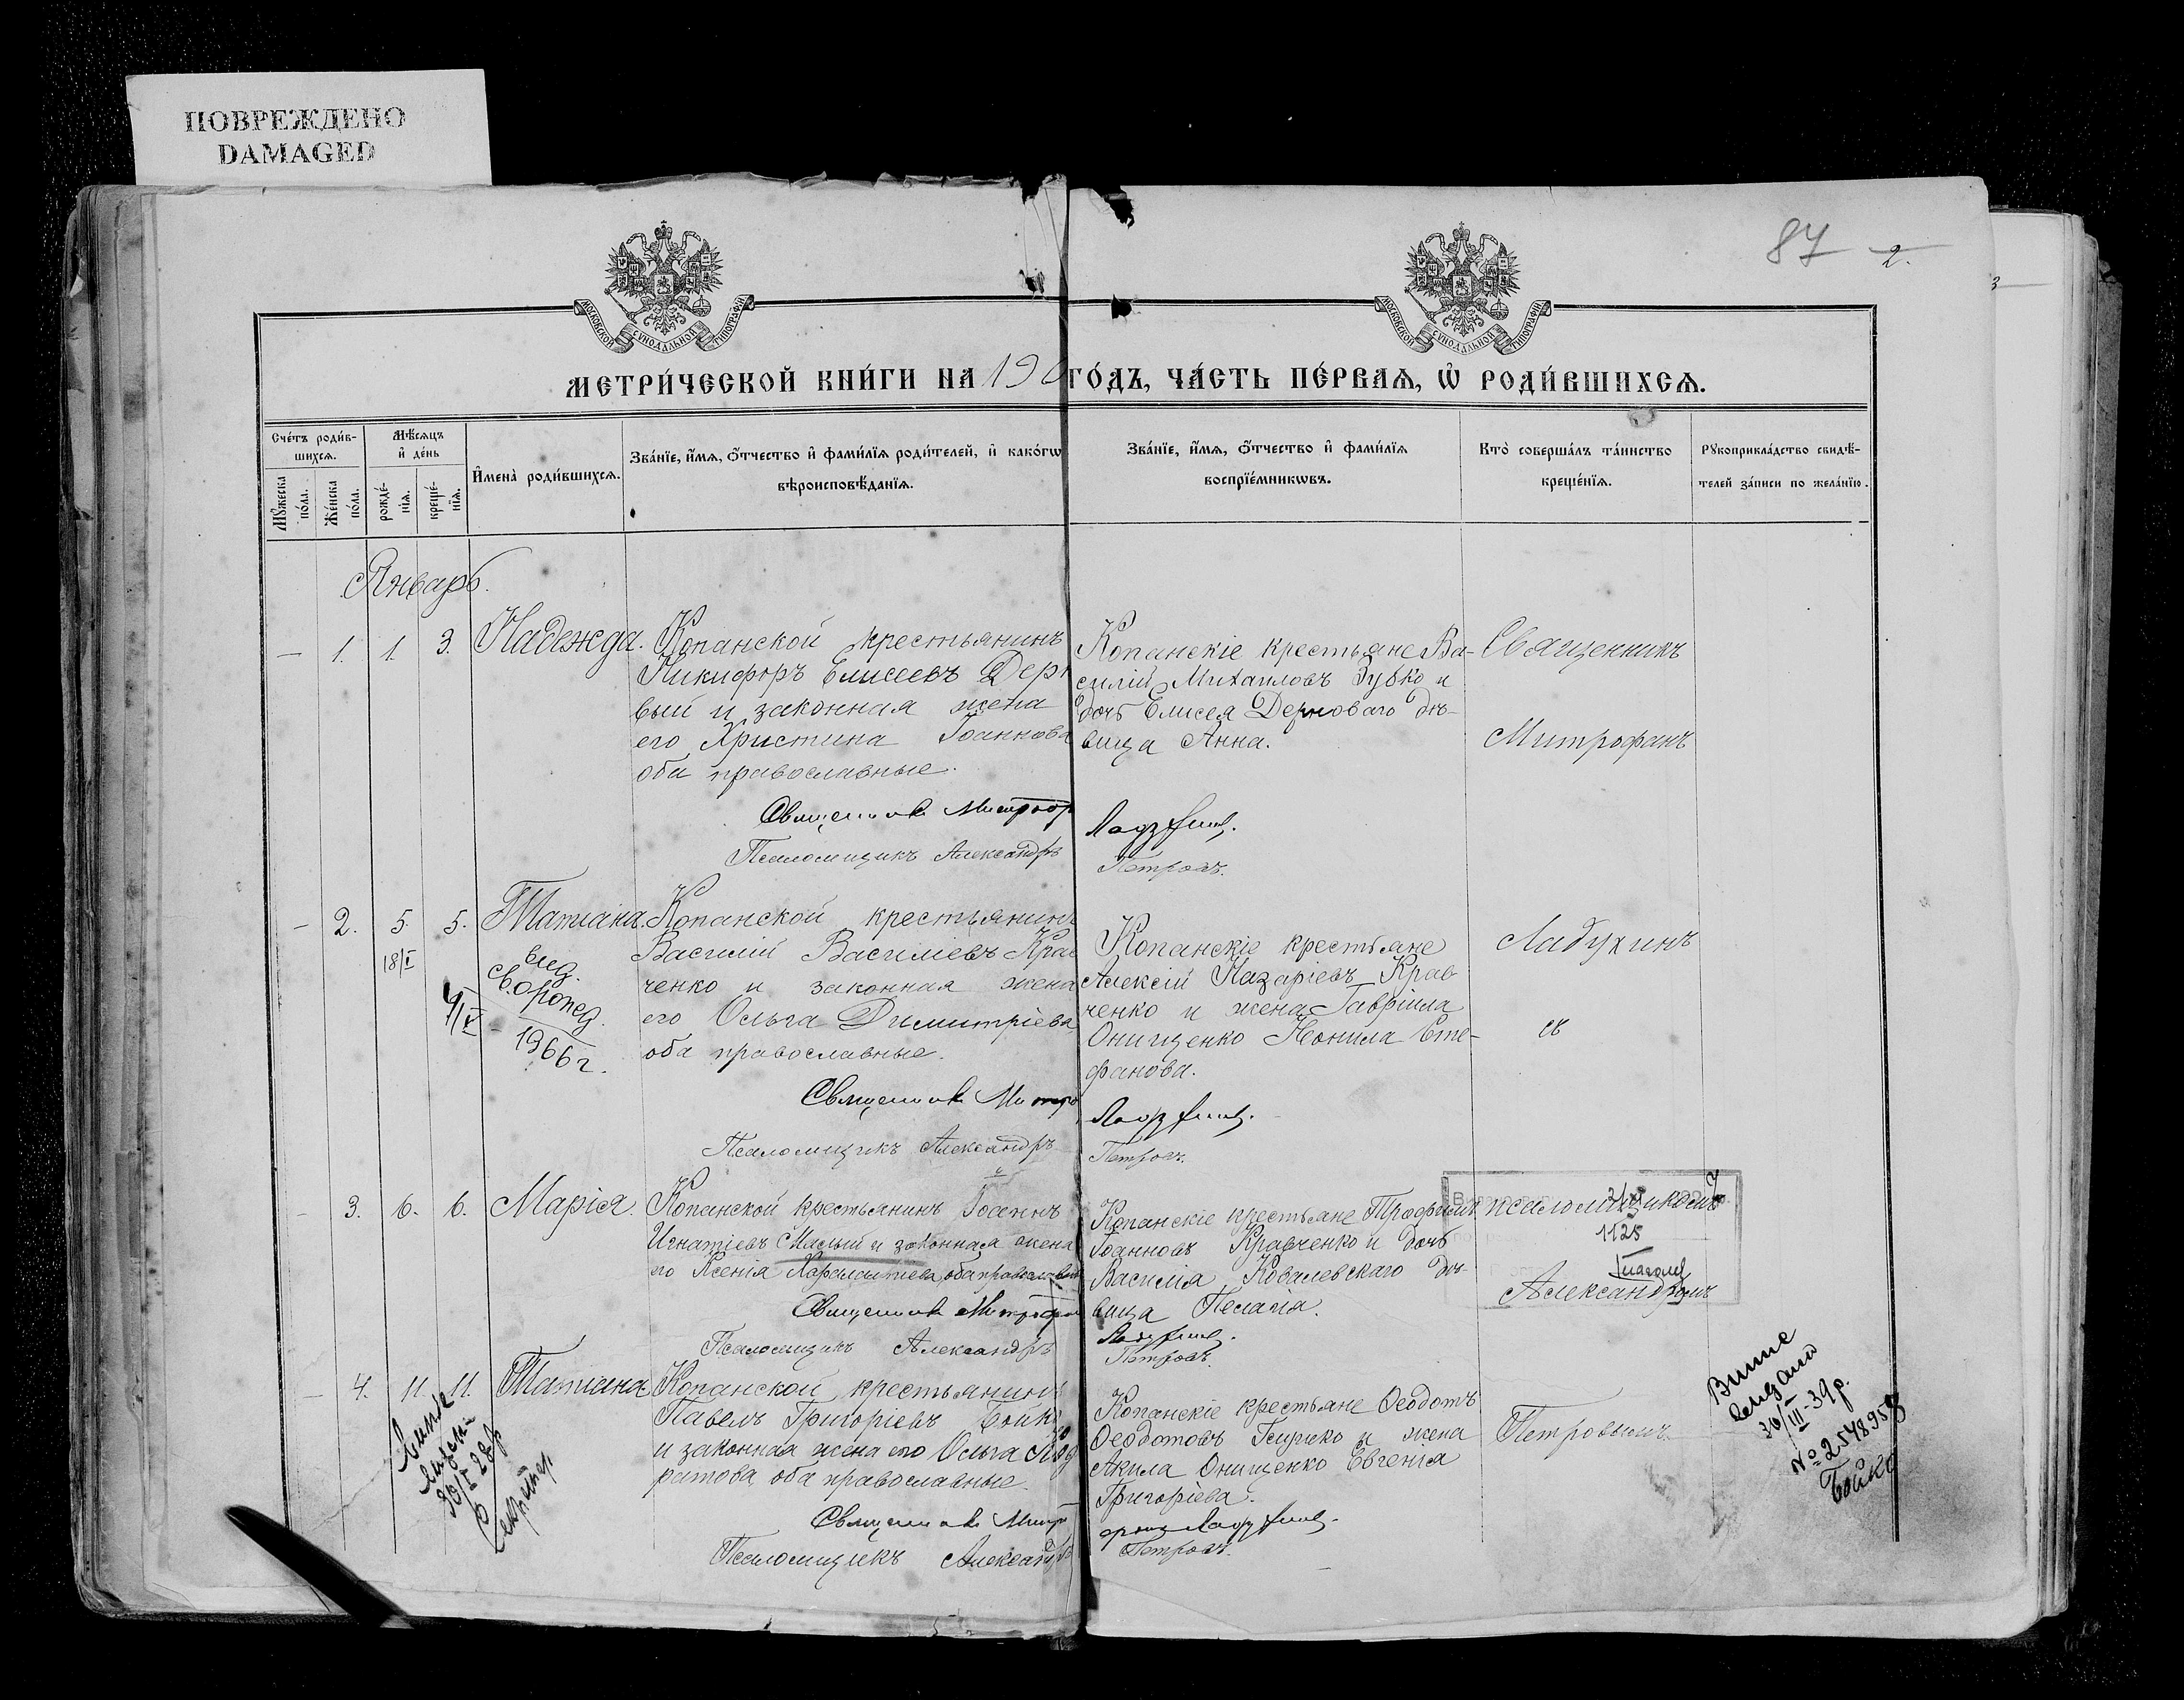 ПОВРЕЖДЕНО
DAMAGED
87 2.
3
МОСКОВСКОЙ СѴНОДАЛЬНОЙ ТИПОГРАФІИ
МОСКОВСКОЙ СѴНОДАЛЬНОЙ ТИПОГРАФІИ
МЕТРИ́ЧЕСКОЙ КНИ́ГИ НА 190 ГО́ДЪ, ЧА́СТЬ ПЕ́РВАѦ, Ѡ҆ РОДИ́ВШИХСѦ.
Сче́тъ роди́в-
шихсѧ.
Мѣ́сѧцъ
и҆ де́нь
Мꙋ́жеска по́ла.
Же́нска по́ла.
рожде́-
нїѧ.
креще́-
нїѧ.
И҆мена̀ роди́вшихсѧ.
Зва́нїе, и҆́мѧ, о҆́тчество и҆ фами́лїѧ роди́телей, и҆ како́гѡ
вѣроисповѣ́данїѧ.
Зва́нїе, и҆́мѧ, о҆́тчество и҆ фами́лїѧ
воспрїе́мникѡвъ.
Кто̀ соверша́лъ та́инство
креще́нїѧ.
Рꙋкоприкла́дство свидѣ́-
телей за́писи по жела́нїю.
Январь.
— 1. 1. 3. Надежда.
Копанской крестьянинъ
Никифоръ Елисеевъ Дерн
вый и законная жена
его Христина Іоаннова
оба православные.
Священник Митроф
Псаломщикъ Александръ
Копанскіе крестьяне Ва-
силій Михаиловъ Зубко и
дочь Елисея Дерноваго дѣ-
вица Анна.
Ладухинъ.
Петровъ.
Священникъ
Митрофанъ
- 2. 5. 5. Татіана.
18/I
вид.
1966 г.
Копанской крестьянинъ
Василій Василіевъ Крав
ченко и законная жена
его Ольга Димитріева,
оба православные.
Священник Митро
Псаломщикъ Александръ
Копанскіе крестьяне
Алексій Назаріевъ Крав-
ченко и жена Гавріила
Онищенко Неонила Сте-
фанова.
Ладухинъ.
Петровъ.
Ладухинъ
съ
- 3. 6. 6. Марія.
Копанской крестьянинъ Іоаннъ
Игнатіевъ Малый и законная жена
его Ксенія Харалампіева, оба православные
Священник Митрофан
Псаломщикъ Александръ
Копанскіе крестьяне Трофимъ
Іоанновъ Кравченко и дочь
Василія Ковалевскаго дѣ-
вица Пелагія.
Ладухинъ.
Петровъ.
псаломщикомъ
1125
Александромъ
— 4. 11. 11. Татіана
Копанской крестьянинъ
Павелъ Григоріевъ Бойко
и законная жена его Ольга
ратова, оба православные.
Священник Митр
Псаломщикъ Александръ
Копанскіе крестьяне Ѳеодотъ
Ѳеодотовъ и жена
Акила Онищенко Евгенія
Григоріева.
Ладухинъ.
Петровъ.
Петровымъ.
30/I 28р
30/III-39р.
№ 2548958
Бойко